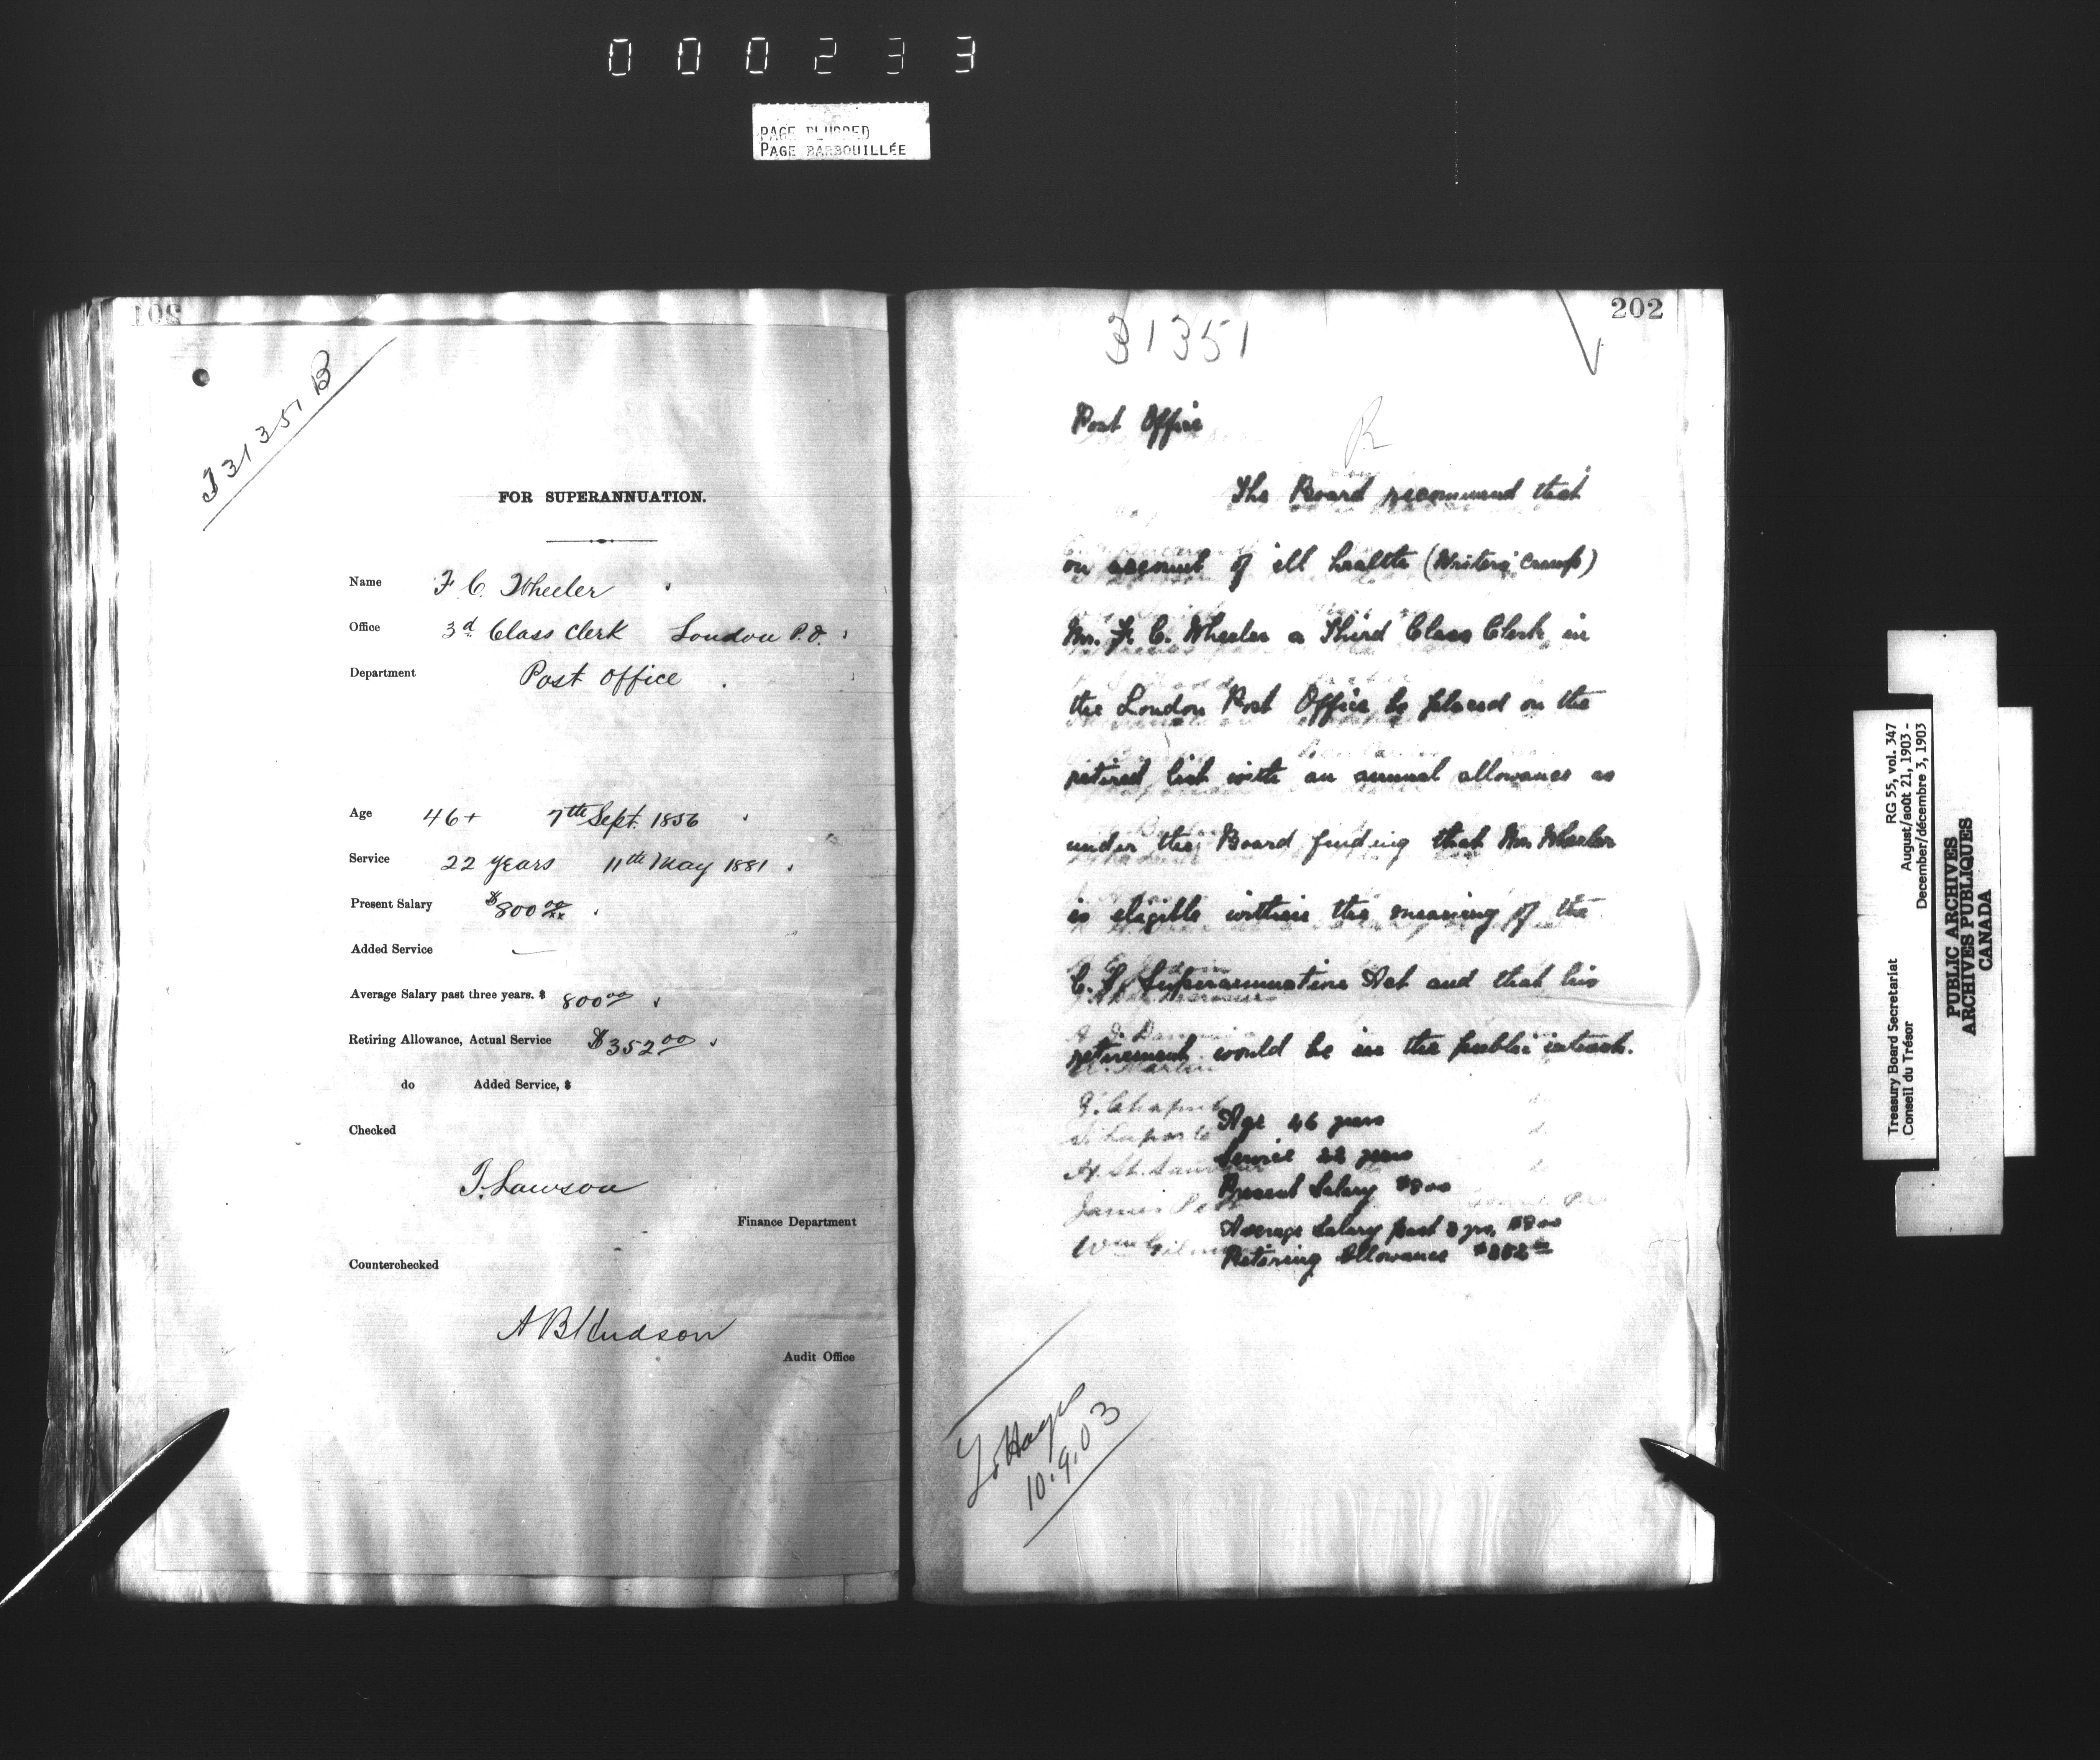 000233
PAGE BLURRED
PAGE BARBOUILLÉE
T31351 B
FOR SUPERANNUATION.
Name F C. Wheeler
Office 3d Class Clerk London P.O.
Department Post Office
Age 46+ 7th Sept. 1856
Service 22 years 11th May 1881
Present Salary $800 00/xx
Added Service —
Average Salary past three years. $ 800 00
Retiring Allowance, Actual Service $352 00
do Added Service, $
Checked
T. Lawson
Finance Department
Counterchecked
A B Hudson
Audit Office
202
31351
Post Office
R
The Board recommend that
on account of ill health (Writers' Cramp)
Mr. F. C. Wheeler a Third Class Clerk in
the London Post Office be placed on the
retired list with an annual allowance as
under the Board finding that Mr. Wheeler
is eligible within the meaning of the
C. S. Superannuation Act and that his
retirement would be in the public interest.
Age 46 years
Service 22 years
Present Salary $800
Average Salary past 3 yrs. $800
Retiring Allowance $352 00
10.9.03
Treasury Board Secretariat RG 55, vol. 347
Conseil du Trésor August/août 21, 1903 -
December/décembre 3, 1903
PUBLIC ARCHIVES
ARCHIVES PUBLIQUES
CANADA